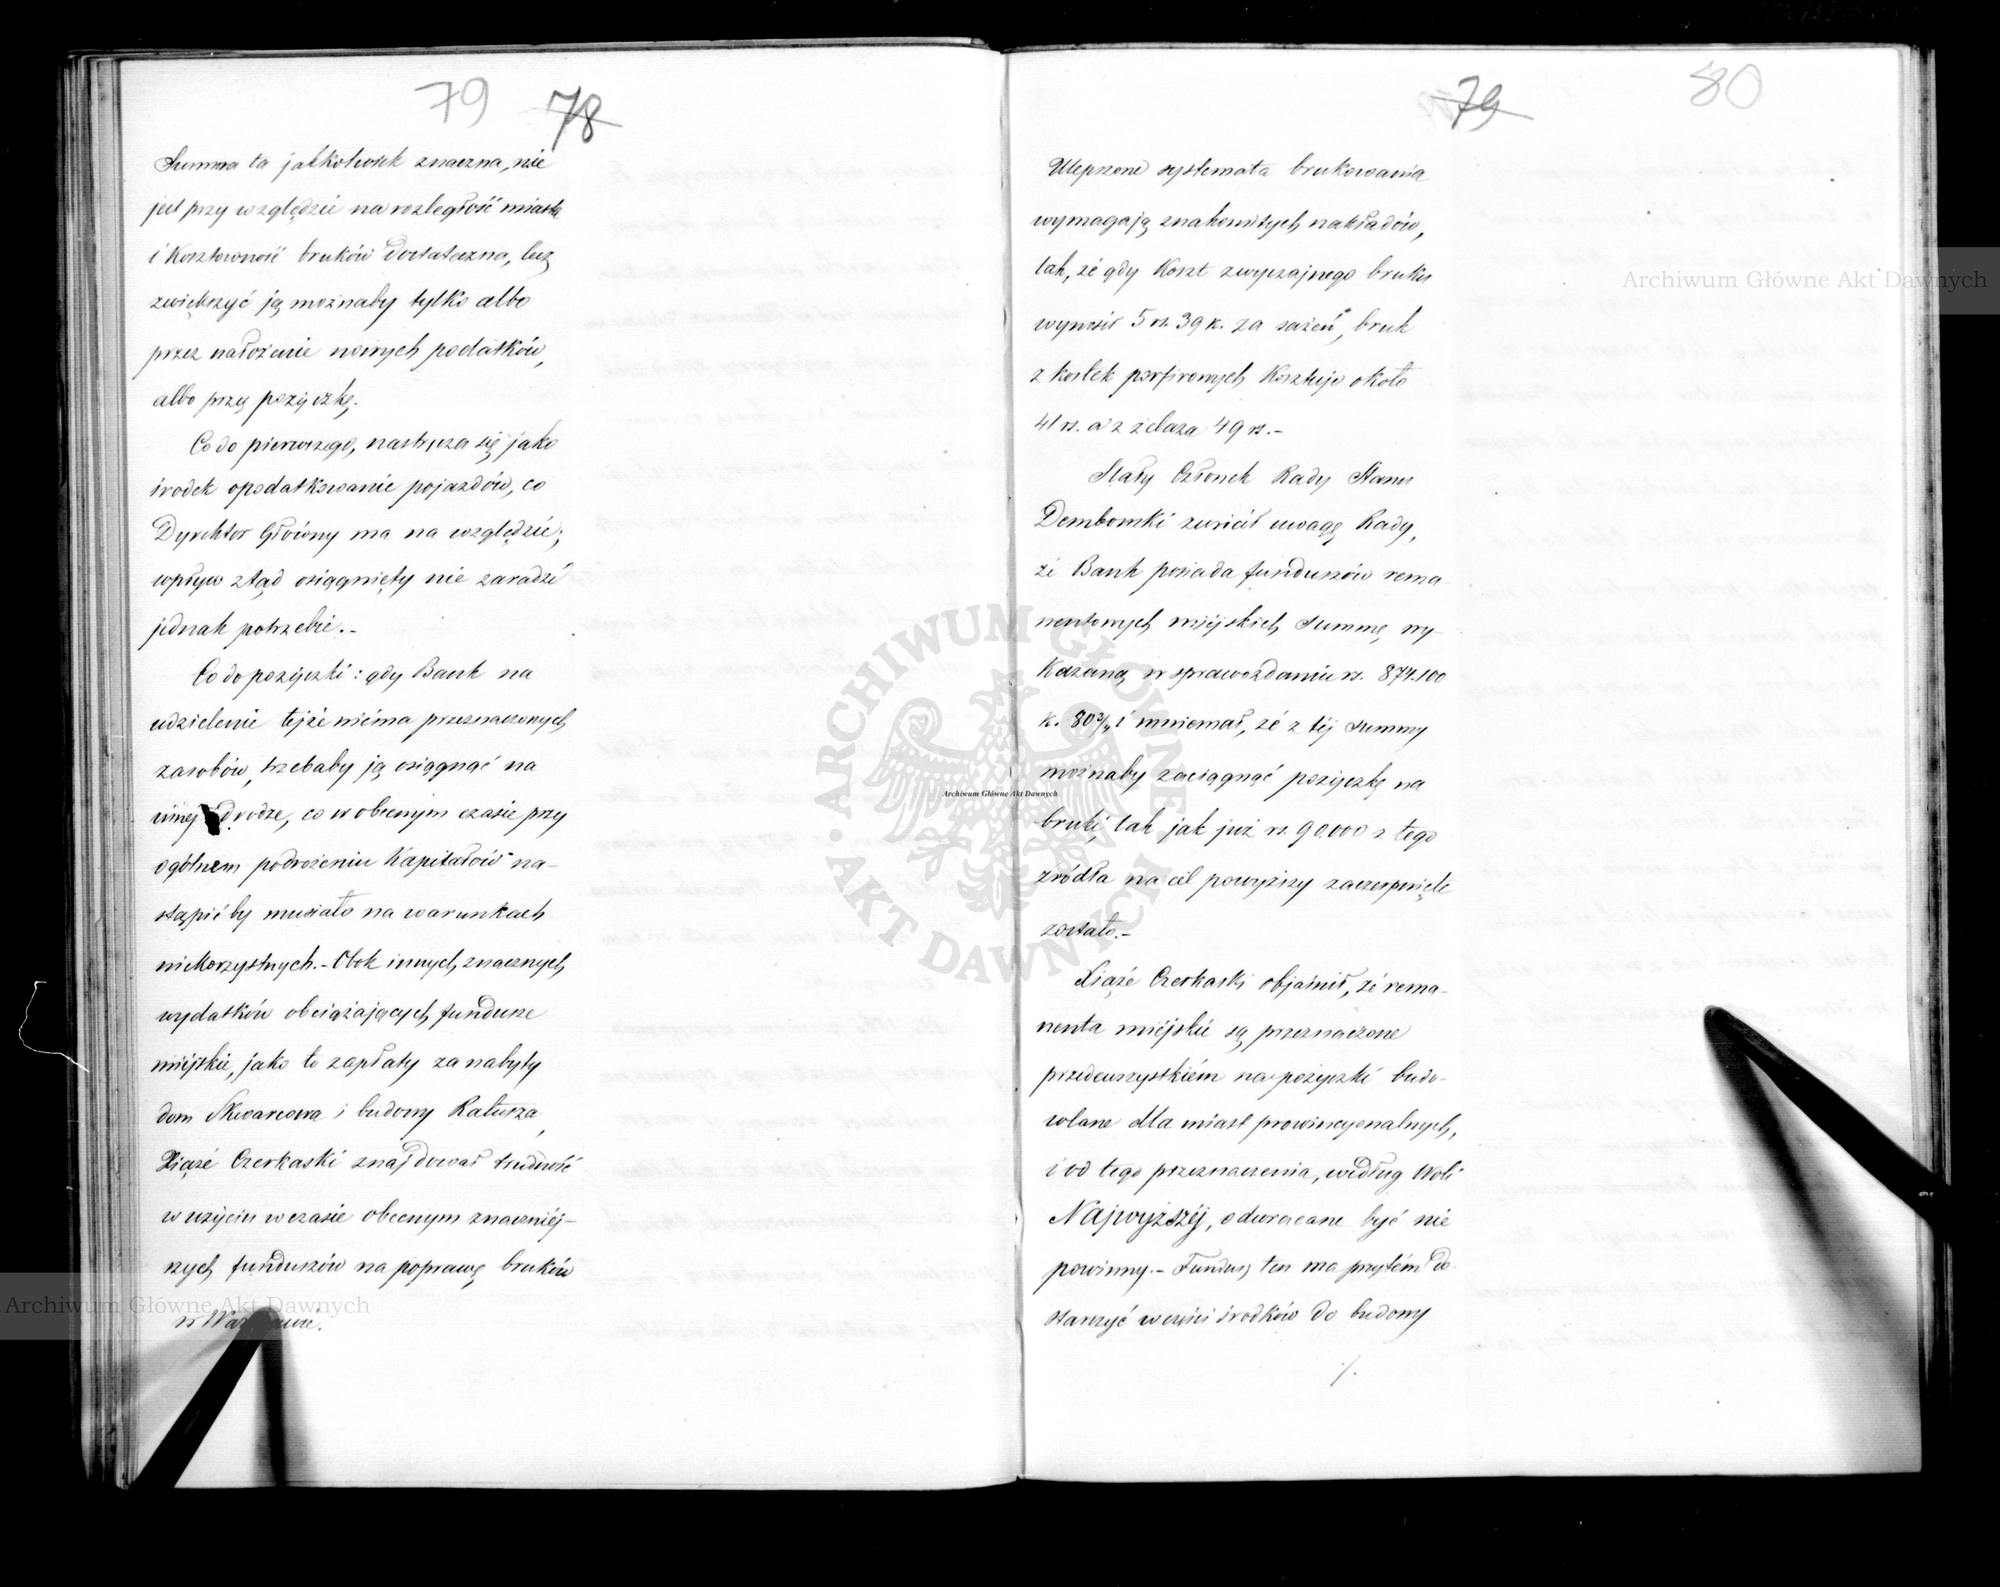 79 78
Summa ta jakkolwiek znaczna, nie
jest przy względzie na rozległość miasta
i kosztowność bruków dostateczna, lecz
zwiększyć ją możnaby tylko albo
przez nałożenie nowych podatków,
albo przez pożyczkę.
Co do pierwszego, nastręcza się jako
środek opodatkowanie pojazdów, co
Dyrektor Główny ma na względzie;
wpływ ztąd osiągnięty nie zaradzi
jednak potrzebie.-
Co do pożyczki: gdy Bank na
udzielenie tejże niema przeznaczonych
zasobów, trzebaby ją osiągnąć na
innej drodze, co w obecnym czasie przy
ogólnem podrożeniu Kapitałów na-
stąpić by musiało na warunkach
niekorzystnych.- Obok innych, znacznych
wydatków obciążających fundusze
miejskie, jako to zapłaty za nabyty
dom Skwarcowa i budowy Ratusza,
Xiąże Czerkaski znajdował trudność
w użyciu w czasie obecnym znaczniej-
szych funduszów na poprawę bruków
w Warszawie.
79 80
Ulepszone systemata brukowania
wymagają znakomitych nakładów,
tak, że gdy Koszt zwyczajnego bruku
wynosił 5 rs. 39 k. za sążeń, bruk
z kostek porfirowych Kosztuje około
41 rs. a z żelaza 49 rs.-
Stały Członek Rady Stanu
Dembowski zwrócił uwagę Rady,
że Bank posiada funduszów rema-
nentowych miejskich summę wy-
Kazaną w sprawozdaniu rs. 874.100
k. 80 3/4 i mniemał, że z tej summy
możnaby zaciągnąć pożyczkę na
bruki, tak jak już rs. 90.000 z tego
źródła na cel powyższy zaczerpnięte
zostało.-
Xiąże Czerkaski objaśnił, że rema-
nenta miejskie są przeznaczone
przedewszystkiém na pożyczki budo-
wlane dla miast prowincyonalnych,
i od tego przeznaczenia, według Woli
Najwyższéj, odwracane być nie
powinny.- Fundusz ten ma przytém do-
starczyć w części środków do budowy
./.
Archiwum Główne Akt Dawnych
Archiwum Główne Akt Dawnych
Archiwum Główne Akt Dawnych
ARCHIWUM GŁÓWNE AKT DAWNYCH